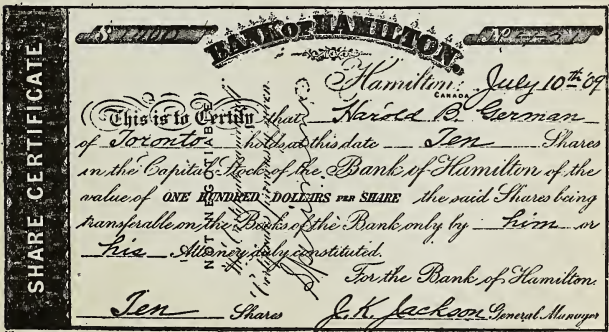 SHARE CERTIFICATE
BANK OF HAMILTON.
No
Hamilton, July 10th '09
CANADA
This is to Certify that Harold B. German
of Toronto holds at this date Ten Shares
in the Capital Stock of the Bank of Hamilton of the
value of ONE HUNDRED DOLLARS PER SHARE the said Shares being
transferable on the Books of the Bank only by him or
his Attorney duly constituted.
For the Bank of Hamilton.
Ten Shares J. K. Jackson General Manager
NOT NEGOTIABLE